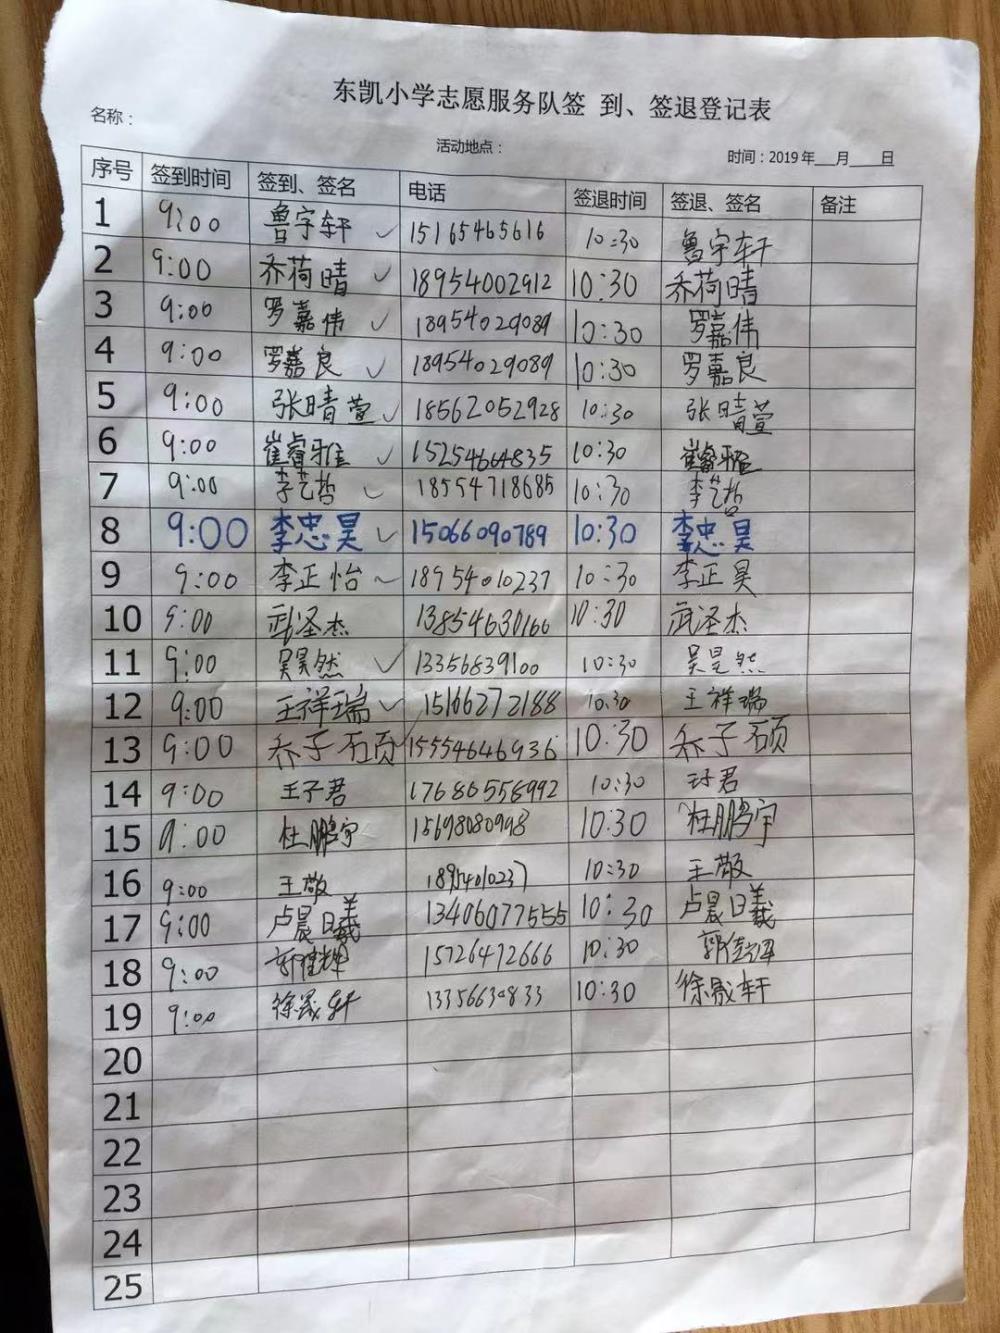 东凯小学志愿服务队签 到、签退登记表
名称：
活动地点：
时间：2019年__月__日
序号 签到时间 签到、签名 电话 签退时间 签退、签名 备注
1 9:00 鲁宇轩 ✓ 15165465616 10:30 鲁宇轩
2 9:00 乔荷晴 ✓ 18954002912 10:30 乔荷晴
3 9:00 罗嘉伟 ✓ 18954029089 10:30 罗嘉伟
4 9:00 罗嘉良 ✓ 18954029089 10:30 罗嘉良
5 9:00 张晴萱 ✓ 18562052928 10:30 张晴萱
6 9:00 崔睿雅 ✓ 15254664835 10:30 崔睿雅
7 9:00 李艺哲 ✓ 18554718685 10:30 李艺哲
8 9:00 李忠昊 ✓ 15066090789 10:30 李忠昊
9 9:00 李正怡 ✓ 18954010237 10:30 李正昊
10 9:00 武圣杰 13854630166 10:30 武圣杰
11 9:00 吴昊然 ✓ 13356839100 10:30 吴昊然
12 9:00 王祥瑞 ✓ 15166272188 10:30 王祥瑞
13 9:00 乔子硕 ✓ 15554646936 10:30 乔子硕
14 9:00 王子君 17686558992 10:30 王子君
15 9:00 杜鹏宇 15698080998 10:30 杜鹏宇
16 9:00 王敬 18954010237 10:30 王敬
17 9:00 卢晨曦 13406077555 10:30 卢晨曦
18 9:00 15726472666 10:30
19 9:00 徐晟轩 13356630833 10:30 徐晟轩
20
21
22
23
24
25